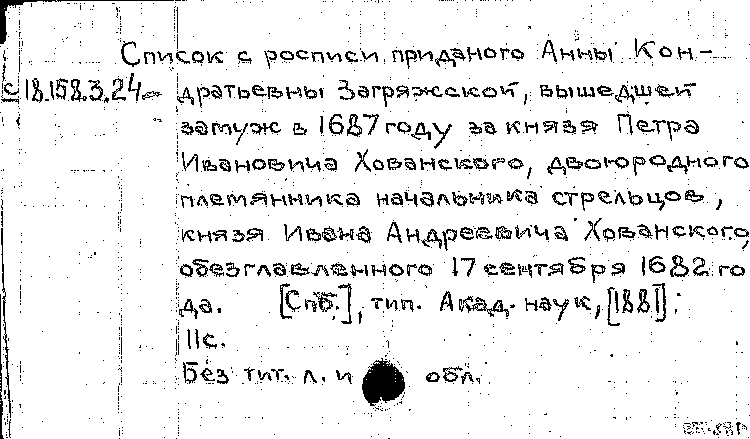 Список с росписи приданого Анны Кон-
с 18.158.3.24 дратьевны Загряжской, вышедшей
замуж в 1687 году за князя Петра
Ивановича Хованского, двоюродного
племянника начальника стрельцов,
князя Ивана Андреевича Хованского,
обезглавленного 17 сентября 1682 го
да. [Спб.], тип. Акад. наук, [1881].
11с.
Без тит. л. и обл.